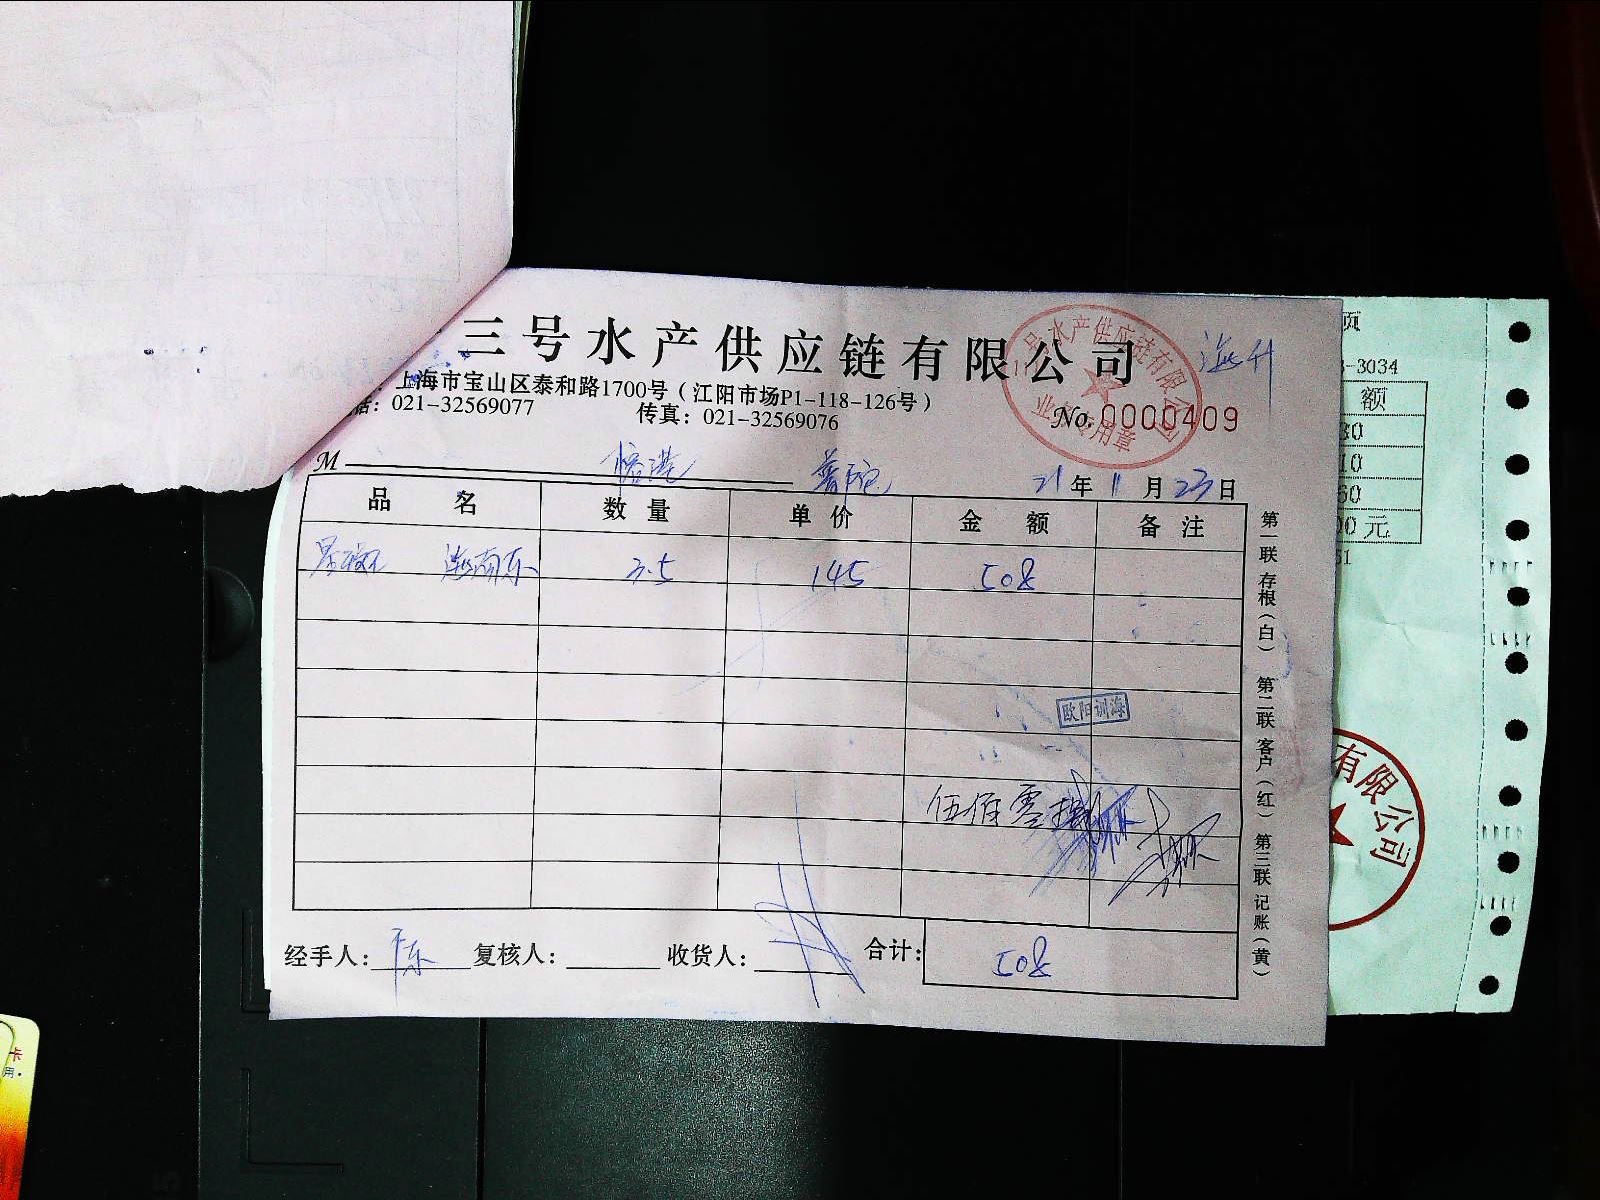 三号水产供应链有限公司
海升
上海市宝山区泰和路1700号（江阳市场P1-118-126号）
话：021-32569077 传真：021-32569076
No. 0000409
水产供应链有限公司
业 用章
M 21年11月23日
品名 数量 单价 金额 备注
3.5 145 508
欧阳训海
伍佰零捌
经手人： 复核人： 收货人： 合计：508
第一联 存根（白） 第二联 客户（红） 第三联 记账（黄）
页
-3034
额
30
10
元
51
有限公司
卡
用